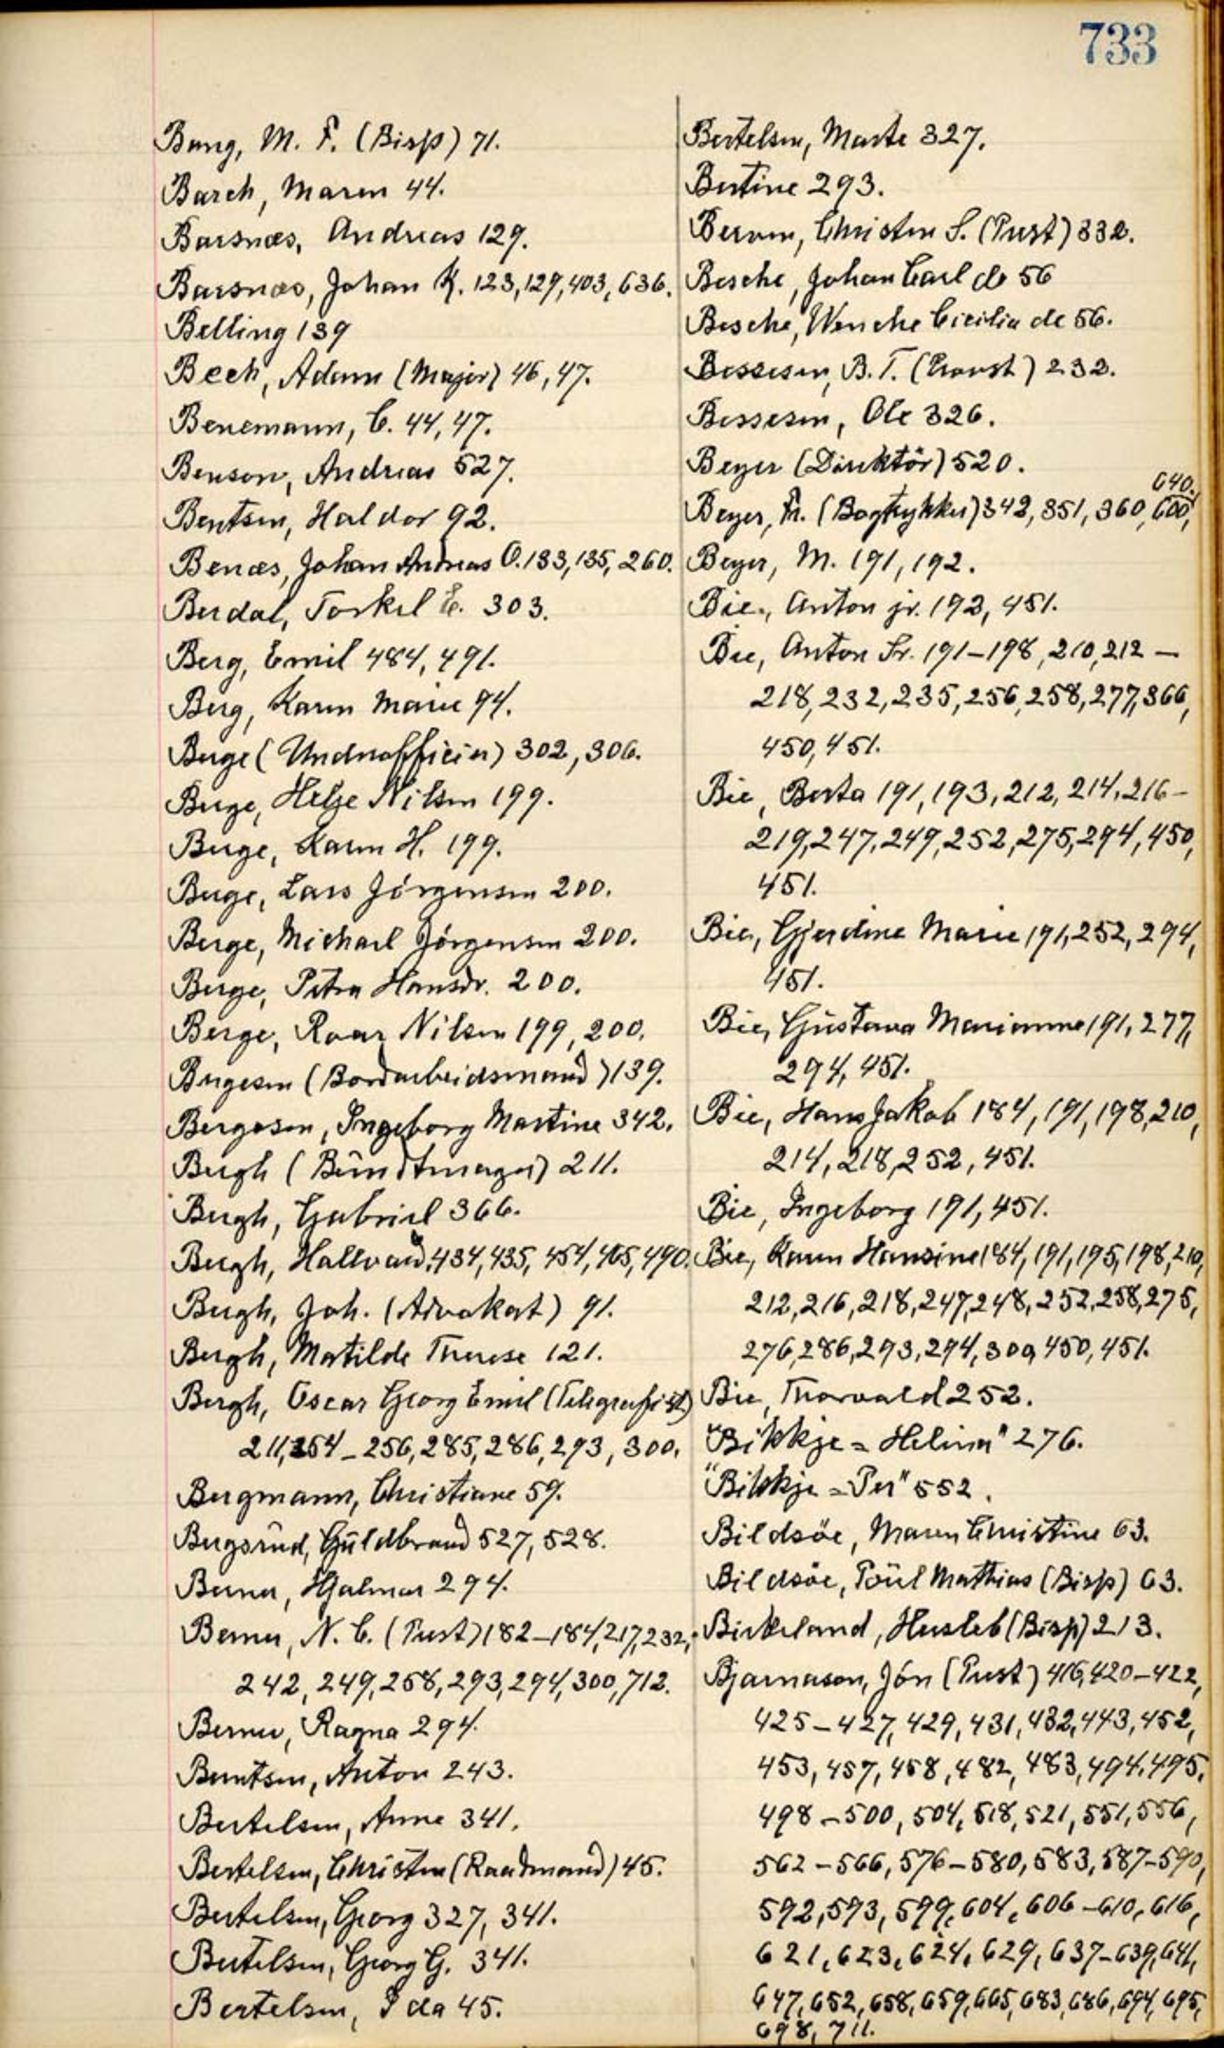 733
Bang, M. F. (Bisp) 71.
Barch, Maren 44.
Barsnæs, Andreas 129.
Barsnæs, Johan K. 123, 129, 403, 636.
Belling 139
Bech, Adam (Major) 46, 47.
Benemann, C. 44, 47.
Benson, Andreas 527.
Bentsen, Haldor 92.
Benæs, Johan Andreas O. 133, 135, 260.
Berdal, Torkel E. 303.
Berg, Emil 484, 491.
Berg, Karen Marie 94.
Berge (Underofficier) 302, 306.
Berge, Helge Nilsen 199.
Berge, Karen H. 199.
Berge, Lars Jörgensen 200.
Berge, Michael Jörgensen 200.
Berge, Petra Hansdr. 200.
Berge, Roar Nilsen 199, 200.
Bergesen (Bordarbeidsmand) 139.
Bergeson, Ingeborg Martine 342.
Bergh (Bundtmager) 211.
Bergh, Gabriel 366.
Bergh, Hallvard, 434, 435, 454, 465, 490.
Bergh, Joh. (Advokat) 91.
Bergh, Matilde Therese 121.
Bergh, Oscar Georg Emil (Telegrafist)
211, 254-256, 285, 286, 293, 300.
Bergmann, Christiane 59.
Bergsrud, Guldbrand 527, 528.
Berner, Hjalmar 294.
Berner, N. C. (Prest) 182-184, 217, 232,
242, 249, 258, 293, 294, 300, 712.
Berner, Ragna 294.
Berntsen, Anton 243.
Bertelsen, Anne 341.
Bertelsen, Christen (Raadmand) 45.
Bertelsen, Georg 327, 341.
Bertelsen, Georg G. 341.
Bertelsen, Ida 45.
Bertelsen, Marte 327.
Bertine 293.
Berven, Christen S. (Prest) 332.
Besche, Johan Carl de 56
Besche, Wenche Cicilia de 56.
Bessesen, B. T. (Provst) 232.
Bessesen, Ole 326.
Beyer (Direktör) 520.
640.
Beyer, Fr. (Bogtrykker) 342, 351, 360, 600,
Beyer, M. 191, 192.
Bie, Anton jr. 192, 451.
Bie, Anton Sr. 191-198, 210, 212-
218, 232, 235, 256, 258, 277, 366,
450, 451.
Bie, Berta 191, 193, 212, 214, 216-
219, 247, 249, 252, 275, 294, 450,
451.
Bie, Gjerdine Marie 191, 252, 294,
451.
Bie, Gustava Marianne 191, 277,
294, 451.
Bie, Hans Jakob 184, 191, 198, 210,
214, 218, 252, 451.
Bie, Ingeborg 191, 451.
Bie, Karen Hansine 184, 191, 195, 198, 210,
212, 216, 218, 247, 248, 252, 258, 275,
276, 286, 293, 294, 300, 450, 451.
Bie, Thorvald 252.
"Bikkje = Helina" 276.
"Bikkje = Per" 552.
Bildsöe, Maren Christine 63.
Bildsöe, Poul Mathias (Bisp) 63.
Birkeland, Hersleb (Bisp) 213.
Bjarnason, Jón (Prest) 416, 420-422,
425-427, 429, 431, 432, 443, 452,
453, 457, 458, 482, 483, 494, 495,
498-500, 504, 518, 521, 551, 556,
562-566, 576-580, 583, 587-590,
592, 593, 599, 604, 606-610, 616,
621, 623, 624, 629, 637-639, 641,
647, 652, 658, 659, 665, 683, 686, 694, 695,
698, 711.